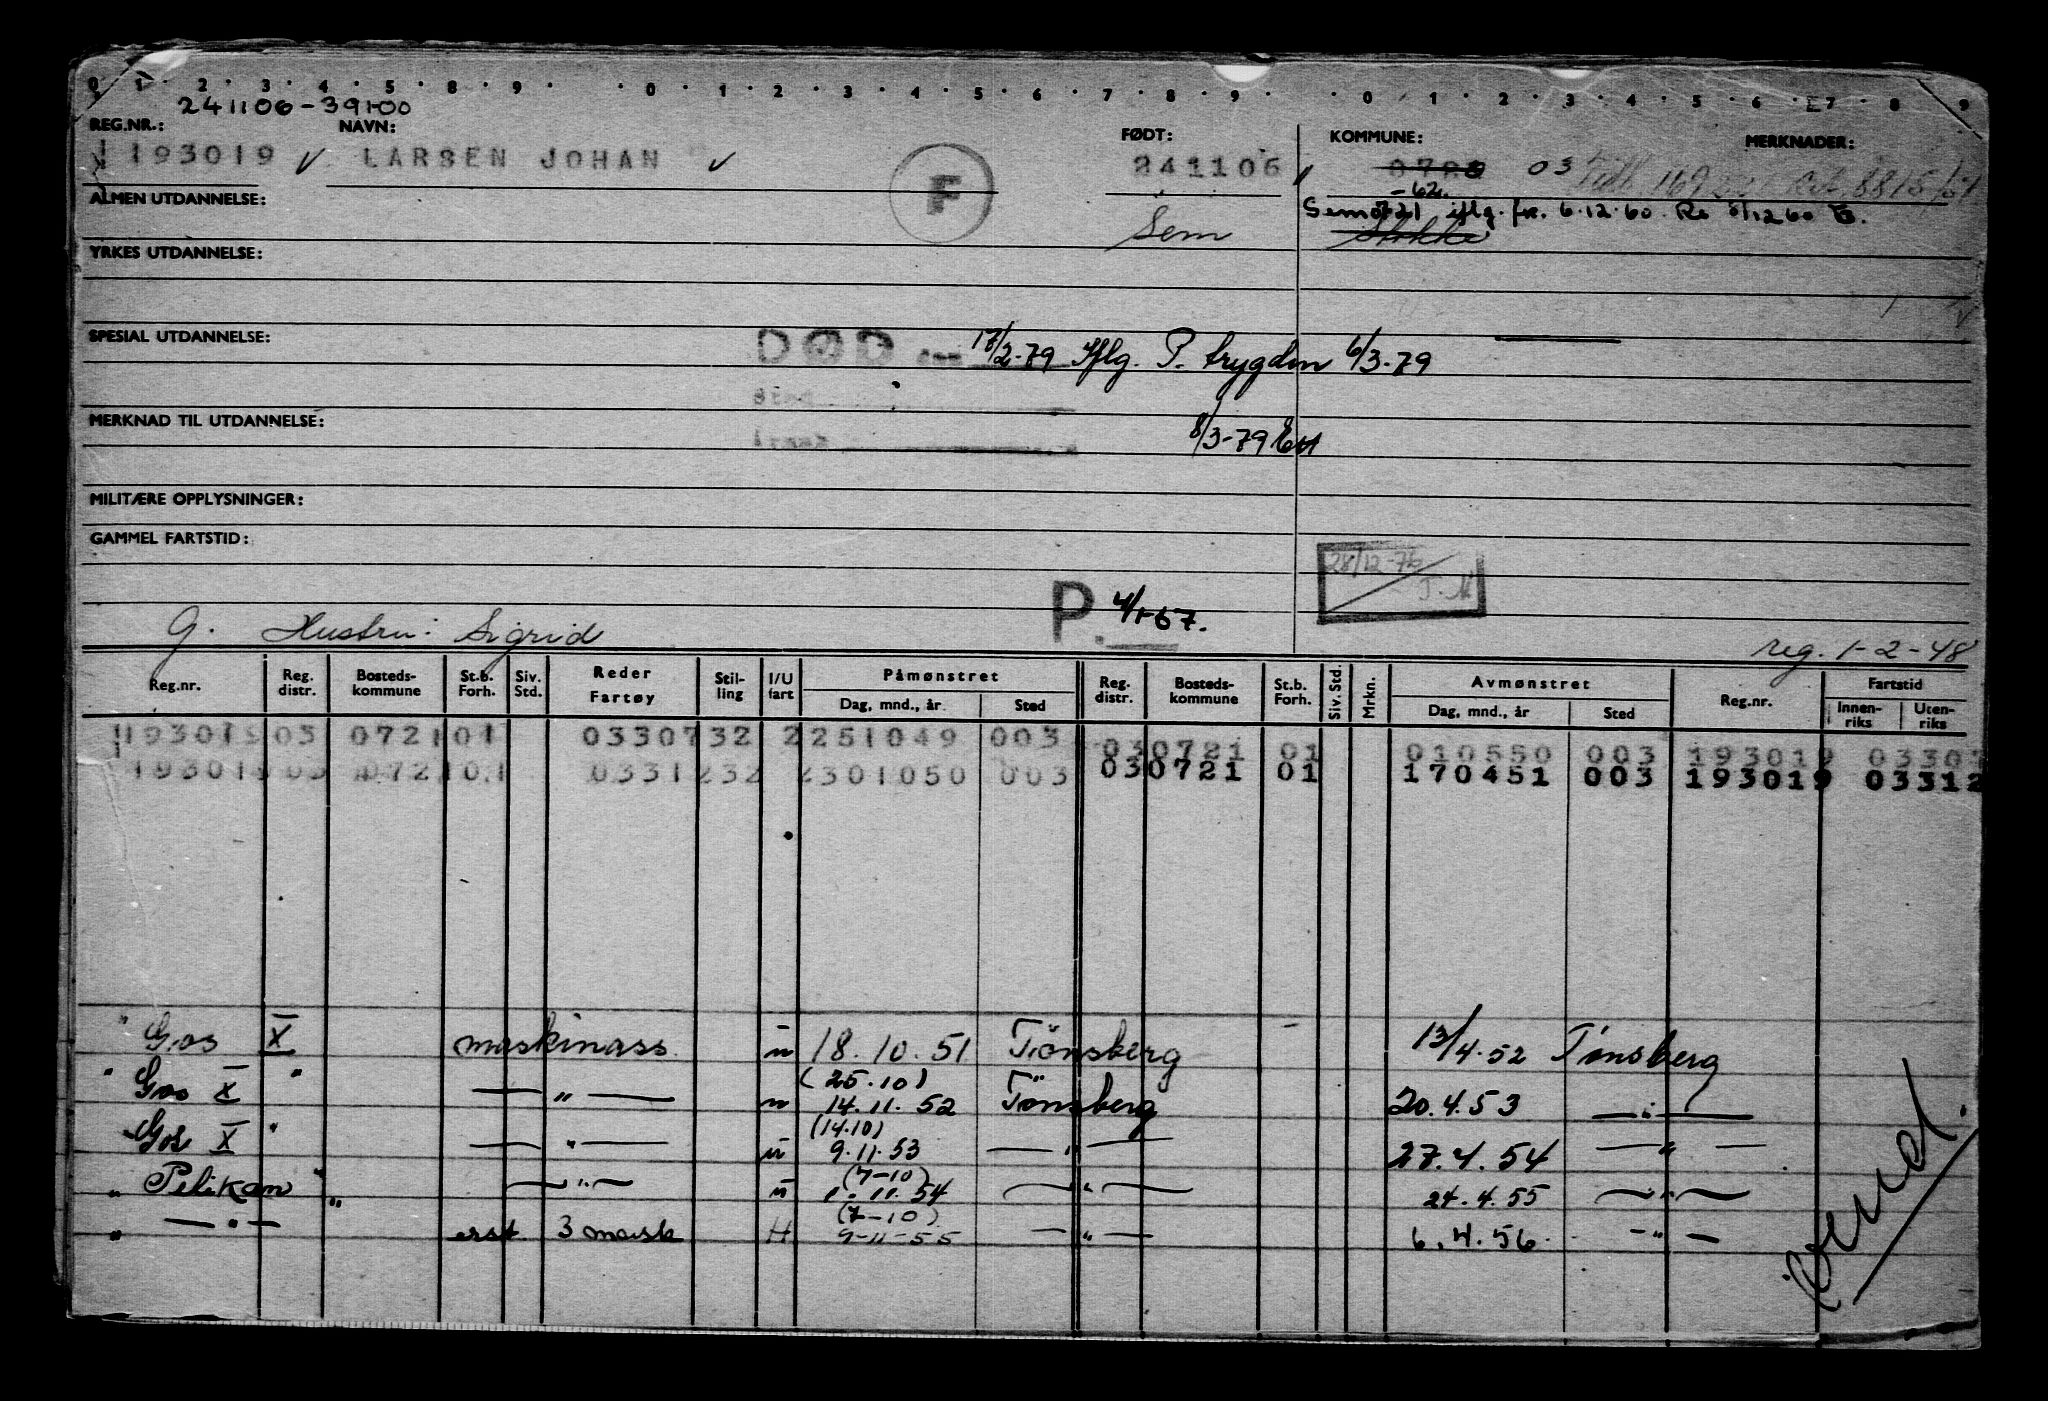 0 1 2 3 4 5 8 9 0 1 2 3 4 5 6 7 8 9 0 1 2 3 4 5 6 7 8 9
241106-39100
REG.NR.: NAVN: FØDT: KOMMUNE: MERKNADER:
193019 LARSEN JOHAN F 241106 03
ALMEN UTDANNELSE: Sem 0721 iflg. fr. 6.12.60
Sem Stokke
YRKES UTDANNELSE:
SPESIAL UTDANNELSE:
DØD den 17/2-79 iflg. P. trygden 6/3-79
Sted
MERKNAD TIL UTDANNELSE:
Årsak 8/3-79
MILITÆRE OPPLYSNINGER:
GAMMEL FARTSTID:
28/12-76
P. 4/1-67.
G. Hustru: Sigrid
reg. 1-2-48
Reg.nr. Reg. distr. Bosteds-kommune St.b. Forh. Siv. Std. Reder Fartøy Stil-ling I/U fart Påmønstret Dag, mnd., år Sted Reg. distr. Bosteds-kommune St.b. Forh. Siv. Std. Mrkn. Avmønstret Dag, mnd., år Sted Reg.nr. Fartstid Innen-riks Uten-riks
193019 03 0721 01 03307 32 2 251049 003 03 0721 01 010550 003 193019 03307
193019 03 0721 01 03312 32 2 301050 003 03 0721 01 170451 003 193019 03312
" Gos X maskinass u 18.10.51 Tönsberg 13/4.52 Tønsberg
(25.10)
" Gos X " — " — u 14.11.52 Tönsberg 20.4.53 — " —
(14.10)
Gos X " — " — u 9.11.53 — " — 27.4.54 — " —
(7-10)
" Pelikan " — " — u 1.11.54 — " — 24.4.55 — " —
(7-10)
" — " — erst. 3 mask H 9-11-55 — " — 6.4.56 — " —